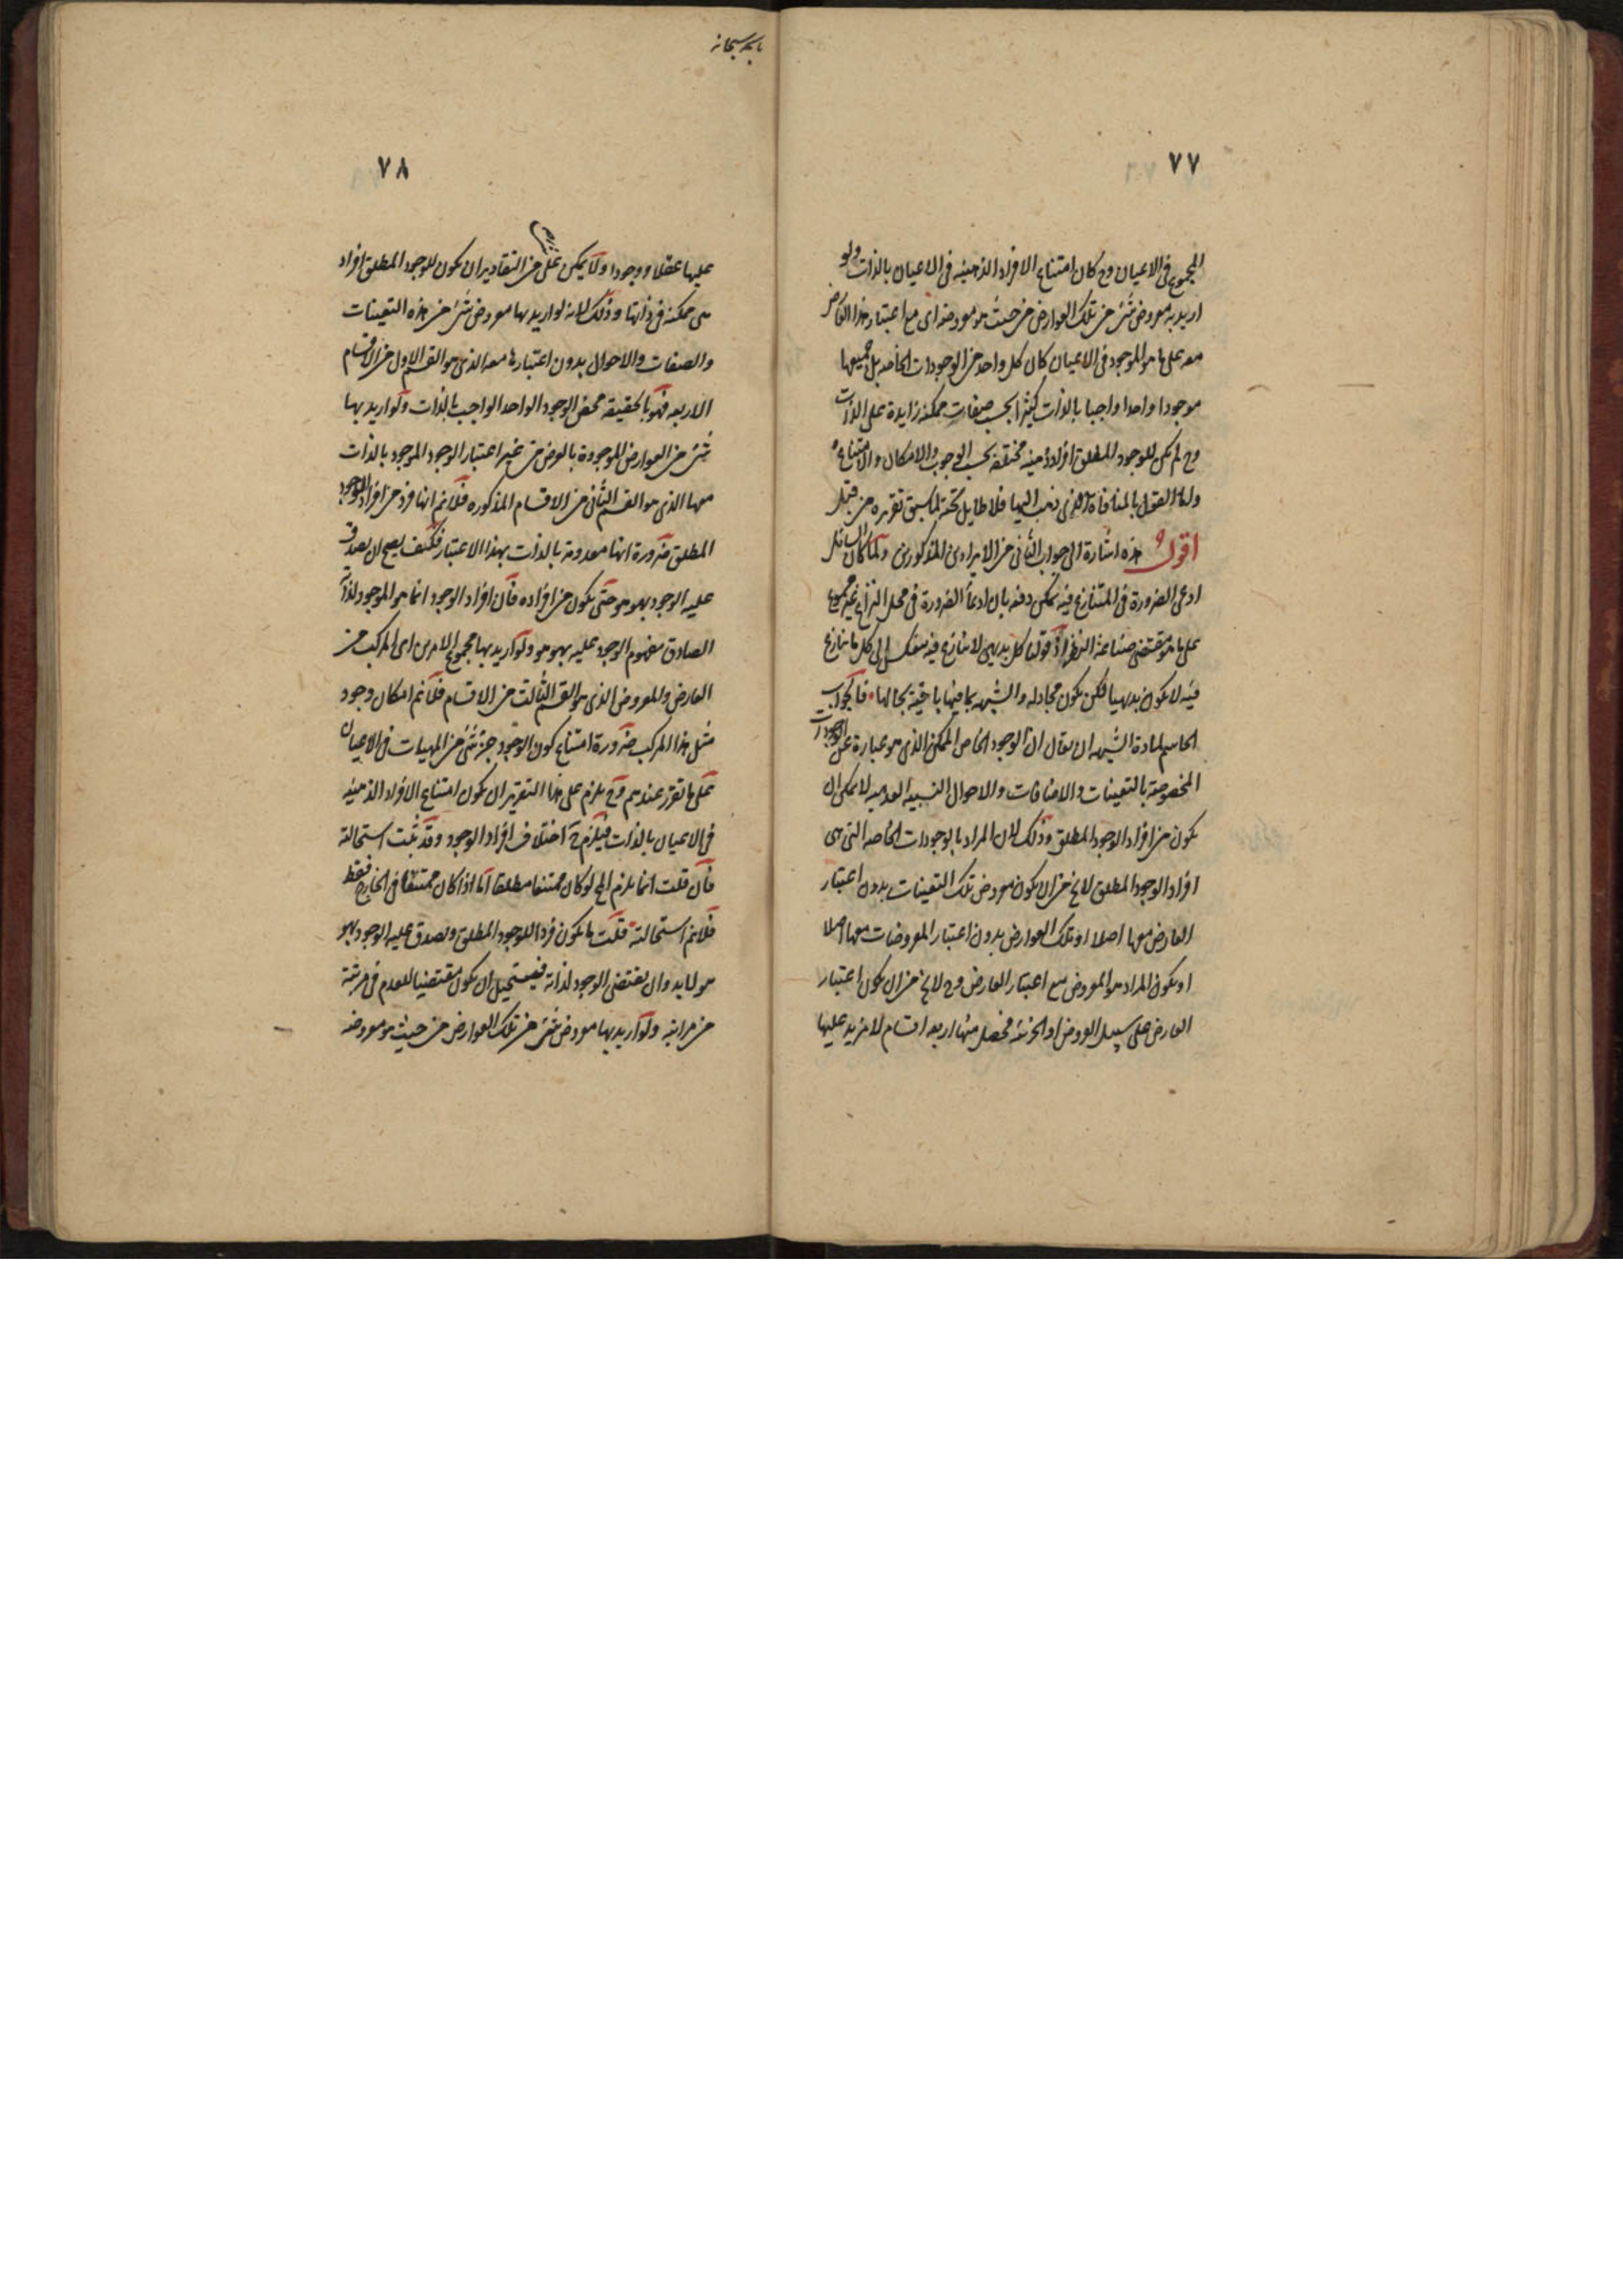 ٧٧
المجموع فى الاعيان وح كان امتناع الافراد الذهنيه فى الاعيان بالذات ولو
اريد به معروض شئ من تلك العوارض من حيث هو معروضه اى مع اعتبار هذا العارض
معه على ما هو الموجود فى الاعيان كان كل واحد من الوجودات الخاصه بل جميعها
موجودا واحدا واجبا بالذات كثيرا بحسب صفات ممكنه زايدة على الذات
وح لم يكن للوجود المطلق افراد ذهنيه مختلفه بحسب الوجوب والامكان والامتناع
واما القول بالمنافاة الذى ذهب اليها فلا طايل تحته لما سبق تقريره من قبل
اقول هذه اشارة الى جواب الثانى من الايرادين المذكورين ولما كان السائل
ادعى الضرورة فى المتنازع فيه يمكن دفعه بان ادعأ الضرورة فى محل النزاع غير مسموع
على ما هو مقتضى صناعة النظر اذ قولنا كل بديهى لا نتنازع فيه ينعكس الى كل ما نتنازع
فيه لا يكون بديهيا لكن يكون مجادله والشبهه بما فيها باقية بحالها فالجواب
الحاسم لمادة الشبهه ان يقال ان الوجود الخاص الممكن الذى هو عبارة عن الوجودات
المخصوصة بالتعينات والاضافات والاحوال النسبيه العدميه لا يمكن ان
يكون من افراد الوجود المطلق وذلك لان المراد بالوجودات الخاصه التى هى
افراد الوجود المطلق لا يخ من ان يكون معروض تلك التعينات بدون اعتبار
العارض معها اصلا او تلك العوارض بدون اعتبار المعروضات معها اصلا
او يكون المراد هو المعروض مع اعتبار العارض وح لا يخ من ان يكون اعتبار
العارض على سبيل العروض او الجزئية فحصل منها اربعه اقسام لا مزيد عليها
٧٨
عليها عقلا ووجودا ولا يمكن على من التقادير ان يكون للوجود المطلق افراد
هى ممكنه فى ذاتها وذلك لانه لو اريد بها معروض شئ من هذه التعينات
والصفات والاحوال بدون اعتبارها معه الذى هو القسم الاول من الاقسام
الاربعه فهو بالحقيقه محض الوجود الواحد الواجب بالذات ولو اريد بها
شئ من العوارض الموجودة بالعرض من غير اعتبار الوجود الموجود بالذات
معها الذى هو القسم الثانى من الاقسام المذكوره فلا نم انها فرد من افراد الوجود
المطلق ضرورة انها معدومة بالذات بهذا الاعتبار فكيف يصح ان يصدق
عليه الوجود بهو هو حتى يكون من افراده فان افراد الوجود انما هو الموجود لذاته
الصادق مفهوم الوجود عليه بهو هو ولو اريد بها مجموع الامرين اى المركب من
العارض والمعروض الذى هو القسم الثالث من الاقسام فلا نم امكان وجود
مثل هذا المركب ضرورة امتناع كون الوجود جزء شئ من المهيات فى الاعيان
على ما تقرر عندهم وح يلزم على هذا التقرير ان يكون امتناع الافراد الذهنيه
فى الاعيان بالذات فيلزم ح اختلاف افراد الوجود وقد ثبت استحالته
فان قلت انما يلزم الخ لو كان ممتنعا مطلقا اما اذا كان ممتنعا فى الخارج فقط
فلا نم استحالته قلت ما يكون فردا للوجود المطلق ويصدق عليه الوجود بهو
هو لا بد وان يقتضى الوجود لذاته فيستحيل ان يكون مقتضيا للعدم فى مرتبة
من مراتبه ولو اريد بها معروض شئ من تلك العوارض من حيث هو معروضه